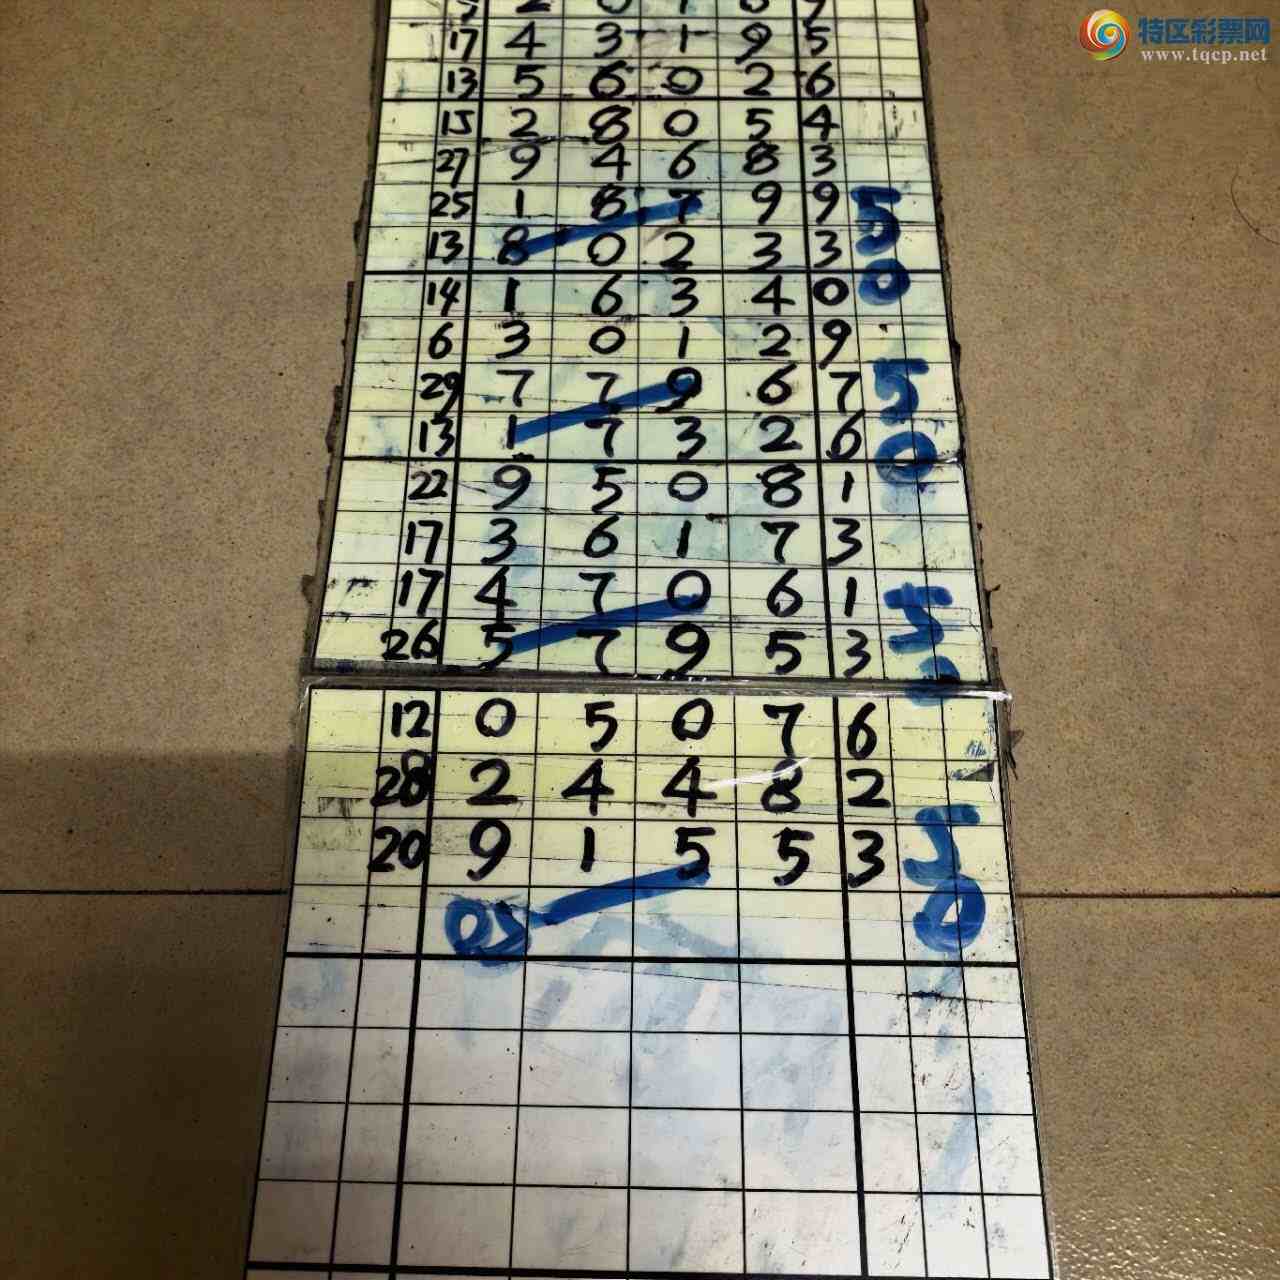 特区彩票网
www.tqcp.net
17 4 3 1 9 5
13 5 6 0 2 6
15 2 8 0 5 4
27 9 4 6 8 3
25 1 8 7 9 9 5
13 8 0 2 3 3 0
14 1 6 3 4 0
6 3 0 1 2 9
29 7 7 9 6 7 5
13 1 7 3 2 6 0
22 9 5 0 8 1
17 3 6 1 7 3
17 4 7 0 6 1 5
26 5 7 9 5 3 0
12 0 5 0 7 6
28 2 4 4 8 2
20 9 1 5 5 3 5
05 0